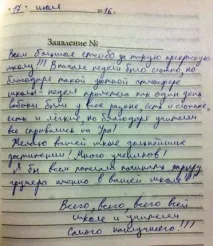 "17" июля 2016.
Заявление №
Всем большое спасибо за такую прекрасную
школу!!! Вначале недели было сложно, но
благодаря такой уютной атмосфере
школы! неделя пролетела как один день
были у всех разные есть и сложные,
есть и легкие, но благодаря учителям
все справились на Ура!
Желаю вашей школе дальнейшего
! Много учеников!
Я бы всем
именно в вашей школе
Всего, всего всего всей
школе и учителям
Самого наилучшего!!!